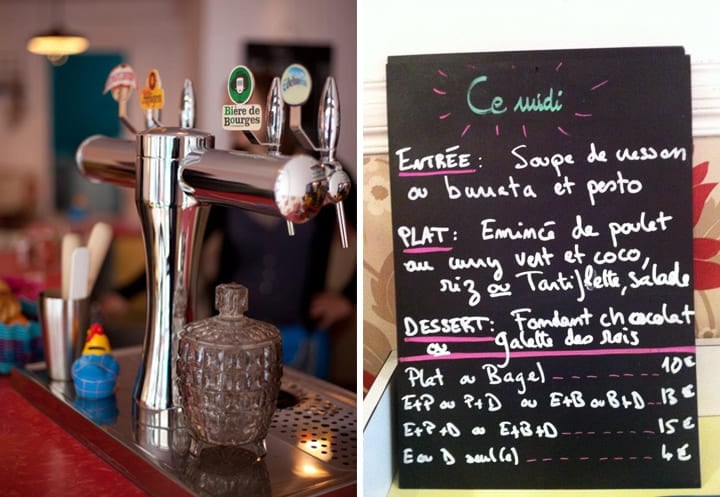 Bière de
Bourges
Ce midi
ENTRÉE : Soupe de cresson
ou burrata et pesto
PLAT : Emincé de poulet
au curry vert et coco,
riz ou Tartiflette, salade
DESSERT : Fondant chocolat
ou galette des rois
Plat ou Bagel ------- 10€
E+P ou P+D ou E+B ou B+D -- 13€
E+P+D ou E+B+D ------ 15€
E ou D seul(e) ------ 4€